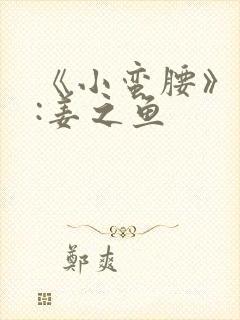 《小蛮腰》
:姜之鱼
鄭爽